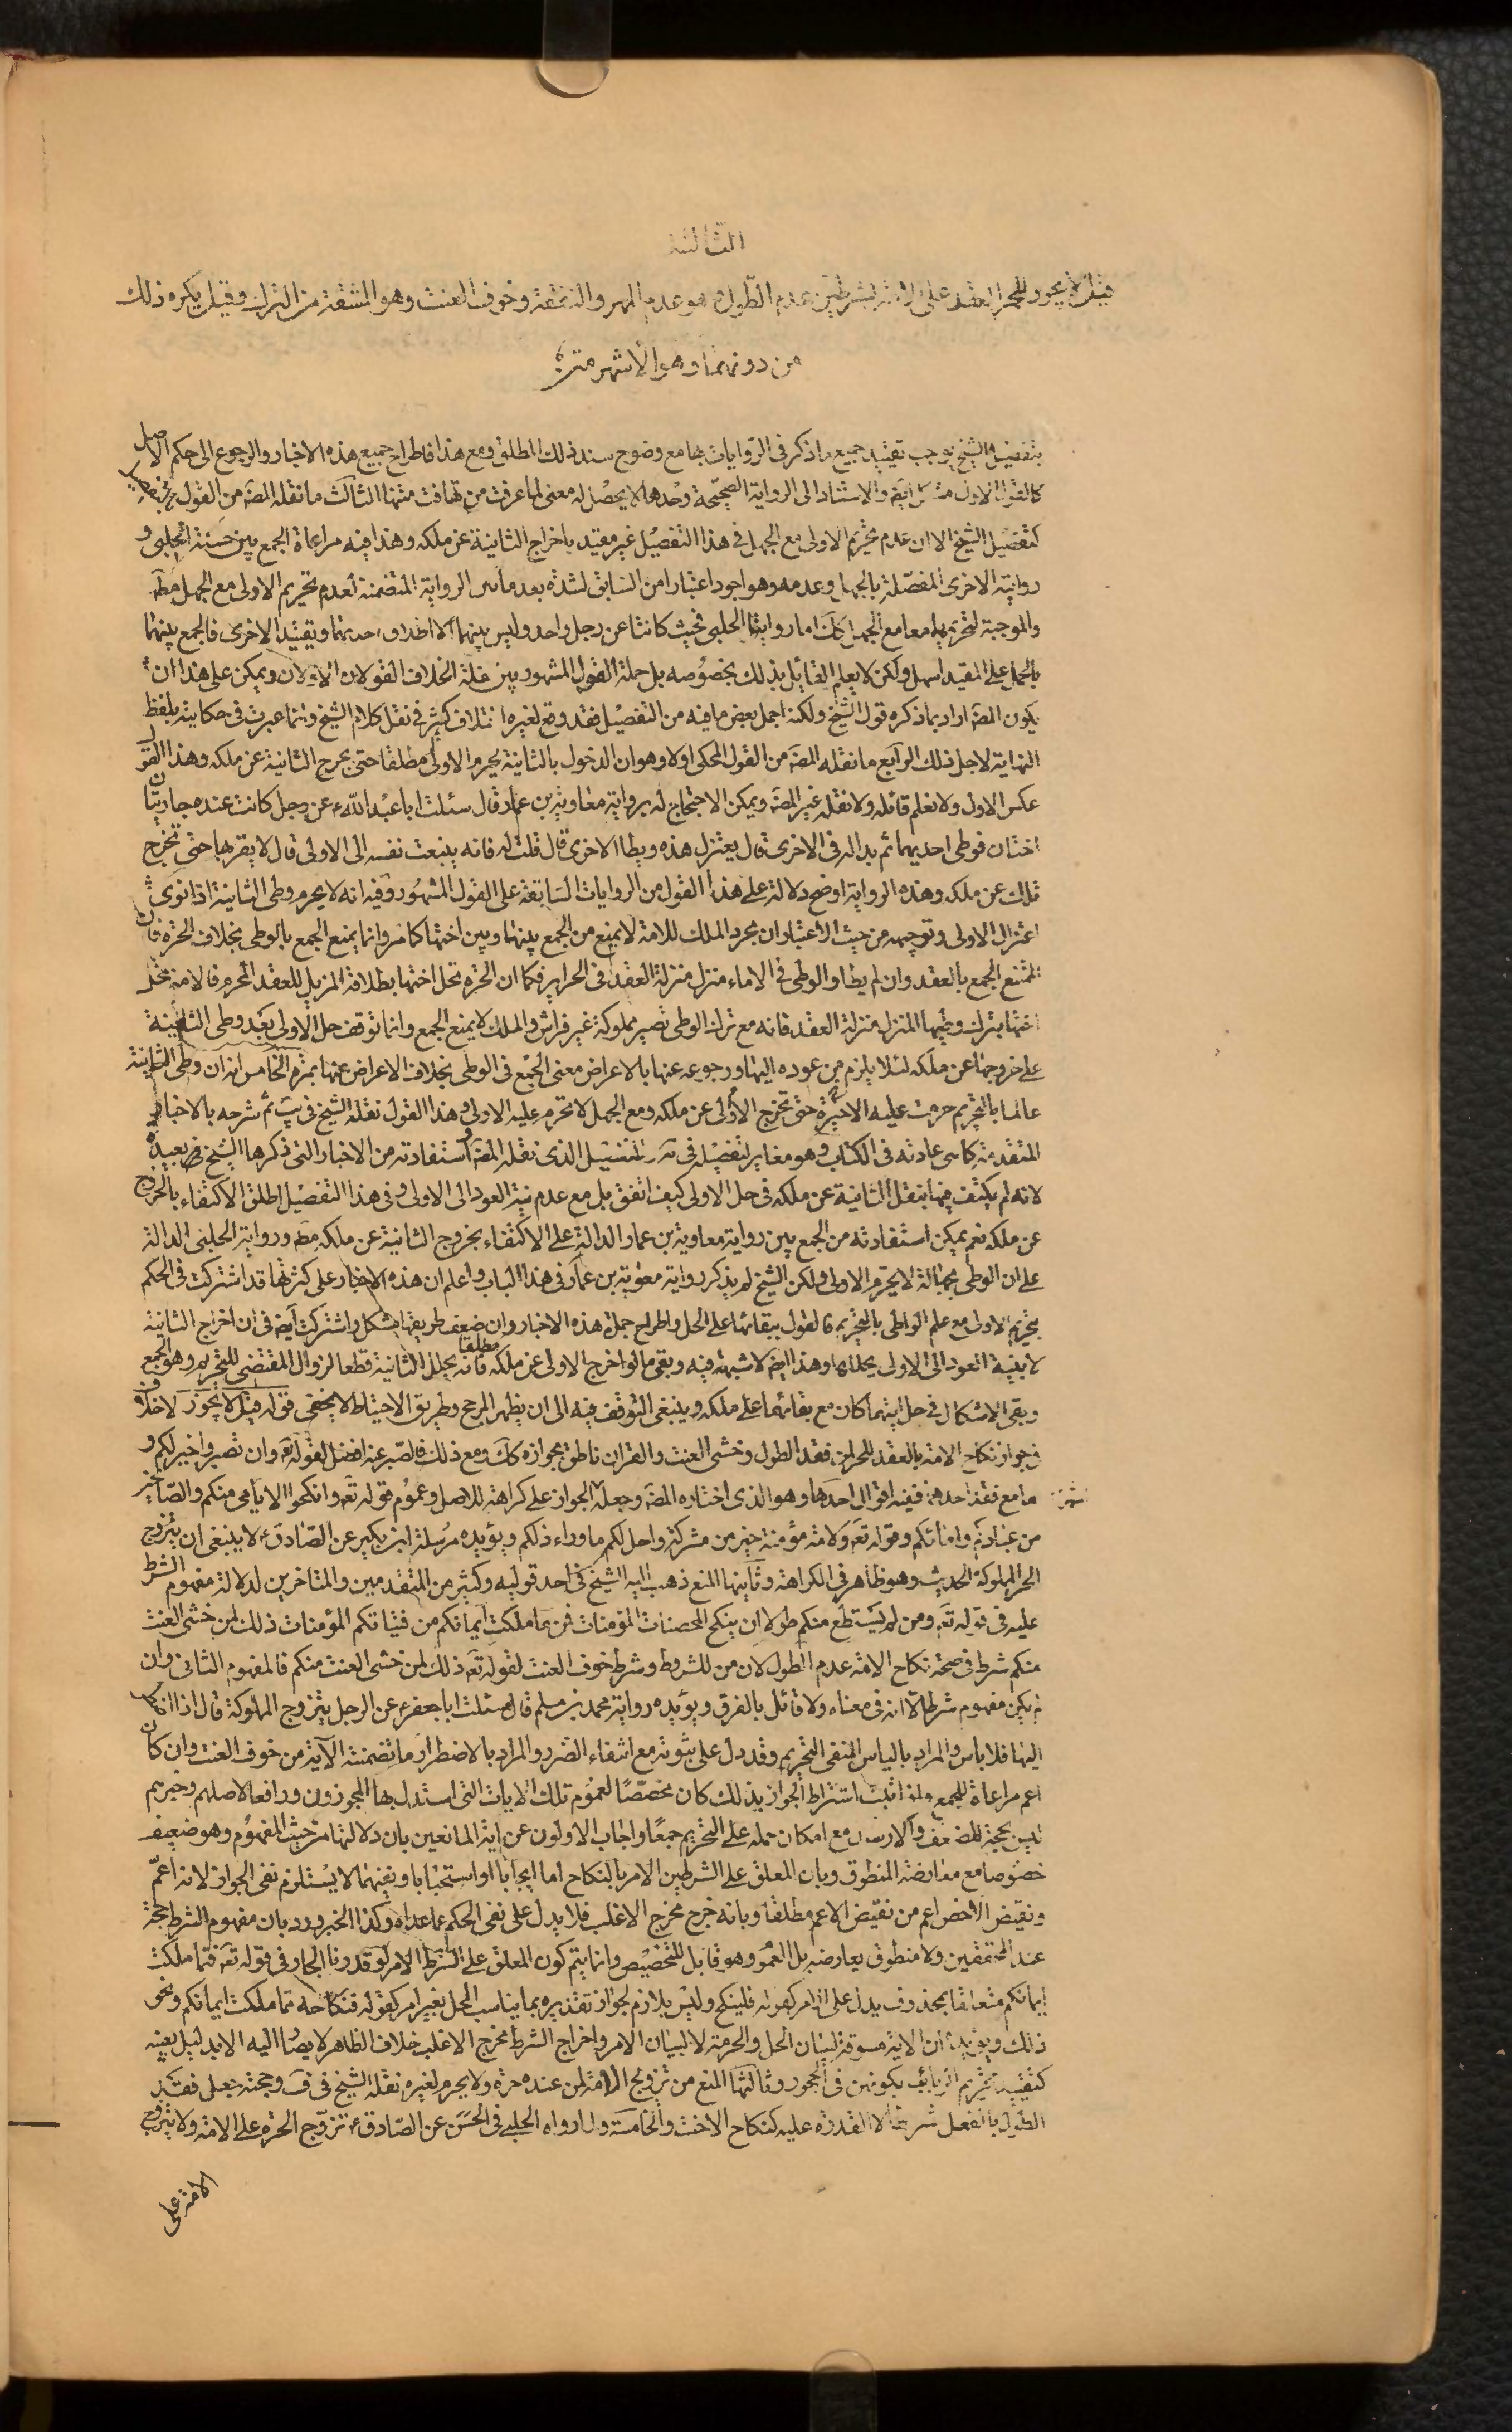 الثالثة
قيل لا يجوز للحر العقد على الامة الا بشرطين عدم الطول وهو عدم المهر والنفقة وخوف العنت وهو المشقة من الترك وقيل يكره ذلك
من دونهما وهو الاشهر متن
بتفصيل الشيخ يوجب تقييد جميع ما ذكر في الروايات بها مع وضوح سند ذلك المطلق ومع هذا فاطراح جميع هذه الاخبار والرجوع الى حكم الاصل
كالقول الاول مشكل ايضا والاستناد الى الرواية الصحيحة وحدها لا يحصل له معنى لما عرفت من تهافت متنها الثالث ما نقله المصَ من القول
كتفصيل الشيخ الا ان عدم تحريم الاولى مع الجهل في هذا التفصيل غير مقيد باخراج الثانية عن ملكه وهذا فيه مراعاة الجمع بين حسنة الحلبي و
روايته الاخرى المفصلة بالجهل وعدمه وهو اجود اعتبارا من السابق لشذه بعد ما بين الرواية المتضمنة لعدم تحريم الاولى مع الجهل مطَ
والموجبة لتحريمها معا مع الجهل كك اما روايتا الحلبي فحيث كانتا عن رجل واحد وليس بينهما الا اطلاق احديهما وتقييد الاخرى فالجمع بينهما
بالحمل على المقيد اسهل ولكن لا يعلم القائل بذلك بخصوصه بل جملة القول المشهور بين نقلة الخلاف القولان الاولان ويمكن على هذا ان
يكون المصَ اراد بما ذكره قول الشيخ ولكنه اجمل بعض ما فيه من التفصيل فقد وقع لغيره اختلاف كثير في نقل كلام الشيخ وانما عبرت في حكايته بلفظ
النهاية لاجل ذلك الرابع ما نقله المصَ من القول المحكي اولا وهو ان الدخول بالثانية يحرم الاولى مطلقا حتى يخرج الثانية عن ملكه وهذا القول
عكس الاول ولا نعلم قائله ولا نقله غير المصَ ويمكن الاحتجاج له برواية معاوية بن عمار قال سئلت ابا عبد الله ع عن رجل كانت عنده جاريتان
اختان فوطى احديهما ثم بدا له في الاخرى قال يعتزل هذه ويطا الاخرى قال قلت له فانه ينبعث نفسه الى الاولى قال لا يقربها حتى تخرج
تلك عن ملكه وهذه الرواية اوضح دلالة على هذا القول من الروايات السابقة على القول المشهور وفيه انه لا يحرم وطى الثانية اذا نوى
اعتزال الاولى وتوجيهه من حيث الاعتبار ان مجرد الملك للامة لا يمنع من الجمع بينها وبين اختها كما مر وانما يمنع الجمع بالوطى بخلاف الحرة فان
الممتنع الجمع بالعقد وان لم يطا والوطى في الاماء منزل منزلة العقد في الحراير فكما ان الحرة تحل اختها بطلاقه المزيل للعقد المحرم فالامة تحل
اختها بترك وطيها المنزل منزلة العقد فانه مع ترك الوطى تصير مملوكة غير فراش والملك لا يمنع الجمع وانما توقف حل الاولى بعد وطى الثانية
على خروجها عن ملكه لئلا يلزم من عوده اليها ورجوعه عنها بالاعراض معنى الجمع في الوطى بخلاف الاعراض عنها بمرة الخامس انه ان وطى الثانية
عالما بالتحريم حرمت عليه الاخيرة حتى تخرج الاولى عن ملكه ومع الجهل لا تحرم عليه الاولى وهذا القول نقله الشيخ في يب ثم شرحه بالاخبار
المتقدمة كما هي عادته في الكتاب وهو مغاير لتفصيله في يه وللتفصيل الذي نقله المصَ واستفادته من الاخبار التي ذكرها الشيخ ظَ بعيدة
لانه لم يكتف فيها بنقل الثانية عن ملكه في حل الاولى كيف اتفق بل مع عدم نية العود الى الاولى وفي هذا التفصيل اطلق الاكتفاء بالخروج
عن ملكه نعم يمكن استفادته من الجمع بين رواية معاوية بن عمار الدالة على الاكتفاء بخروج الثانية عن ملكه مطَ ورواية الحلبي الدالة
على ان الوطى بجهالة لا يحرم الاولى ولكن الشيخ لم يذكر رواية معوية بن عمار في هذا الباب واعلم ان هذه الاخبار على كثرتها قد اشتركت في الحكم
بتحريم الاولى مع علم الواطى بالتحريم فالقول ببقائها على الحل واطراح جملة هذه الاخبار وان ضعف طريقها مشكل واشتركت ايضَ في ان اخراج الثانية
لا بنية العود الى الاولى يحللها وهذا ايضَ لا شبهة فيه وبقى ما لو اخرج الاولى عن ملكه فانه يحلل الثانية مطلقا قطعا لزوال المقتضى للتحريم وهو الجمع
وبقى الاشكال في حل ايتهما كان مع بقائهما على ملكه وينبغي التوقف فيه الى ان يظهر المرجح وطريق الاحتياط لا يخفى قوله قيل لا يجوز لا خلاف
في جواز نكاح الامة بالعقد للحر اذا فقد الطول وخشى العنت والقران ناطق بجوازه كك ومع ذلك فالصبر عنه افضل لقوله تعَ وان تصبروا خير لكم و
اما مع فقد احدهما ففيه اقوال احدها وهو الذي اختاره المصَ وجعله اشهر الجواز على كراهة للاصل وعموم قوله تعَ وانكحوا الايامى منكم والصالحين
من عبادكم وامائكم وقوله تعَ ولامة مؤمنة خير من مشركة واحل لكم ما وراء ذلكم ويؤيده مرسلة ابن بكير عن الصادق ع لا ينبغي ان يتزوج
الحر المملوكة الحديث وهو ظاهر في الكراهة وثانيها المنع ذهب اليه الشيخ في احد قوليه وكثير من المتقدمين والمتاخرين لدلالة مفهوم الشرط
عليه في قوله تعَ ومن لم يستطع منكم طولا ان ينكح المحصنات المؤمنات فمن ما ملكت ايمانكم من فتياتكم المؤمنات ذلك لمن خشى العنت
منكم شرط في صحة نكاح الامة عدم الطول لان من للشرط وشرط خوف العنت لقوله تعَ ذلك لمن خشى العنت منكم فالمفهوم الثاني وان
لم يكن مفهوم شرط الا انه في معناه ولا قائل بالفرق ويؤيده رواية محمد بن مسلم قال سئلت ابا جعفر ع عن الرجل يتزوج المملوكة قال اذا اضطر
اليها فلا باس والمراد بالباس المنفي التحريم وقد دل على ثبوته مع انتفاء الضرر والمراد بالاضطرار ما تضمنته الآية من خوف العنت وان كان
اعم مراعاة للجمع واذا ثبت اشتراط الجواز بذلك كان مخصصا لعموم تلك الايات التي استدل بها المجوزون ورافعا لاصلهم وخبرهم
ليس بحجة للضعف والارسال مع امكان حمله على التحريم جمعا واجاب الاولون عن اية المانعين بان دلالتها من حيث المفهوم وهو ضعيف
خصوصا مع معارضة المنطوق وبان المعلق على الشرطين الامر بالنكاح اما ايجابا او استحبابا ونفيهما لا يستلزم نفي الجواز لانه اعم
ونقيض الاخص اعم من نقيض الاعم مطلقا وبانه خرج مخرج الاغلب فلا يدل على نفي الحكم عما عداه وكذا الخبر ورد بان مفهوم الشرط حجة
عند المحققين ولا منطوق يعارضه بل العموم وهو قابل للتخصيص وانما يتم كون المعلق على الشرط الامر لو قدرنا الجار في قوله تعَ فمما ملكت
ايمانكم متعلقا بمحذوف يدل على الامر كقوله فلينكح وليس بلازم لجواز تقديره بما يناسب الحل بغير امر كقوله فنكاحه مما ملكت ايمانكم ونحو
ذلك ويؤيده ان الاية مسوقة لبيان الحل والحرمة لا لبيان الامر واخراج الشرط مخرج الاغلب خلاف الظاهر لا يصار اليه الا بدليل يعينه
كتقييد تحريم الربائب بكونهن في الحجور وثالثها المنع من تزويج الامة لمن عنده حرة ولا يحرم لغيره نقله الشيخ في فَ وحجته جعل فقد
الطول بالفعل شرطا لا القدرة عليه كنكاح الاخت والخامسة ولما رواه الحلبي في الحسن عن الصادق ع تزوج الحرة على الامة ولا يتزوج
الامة على